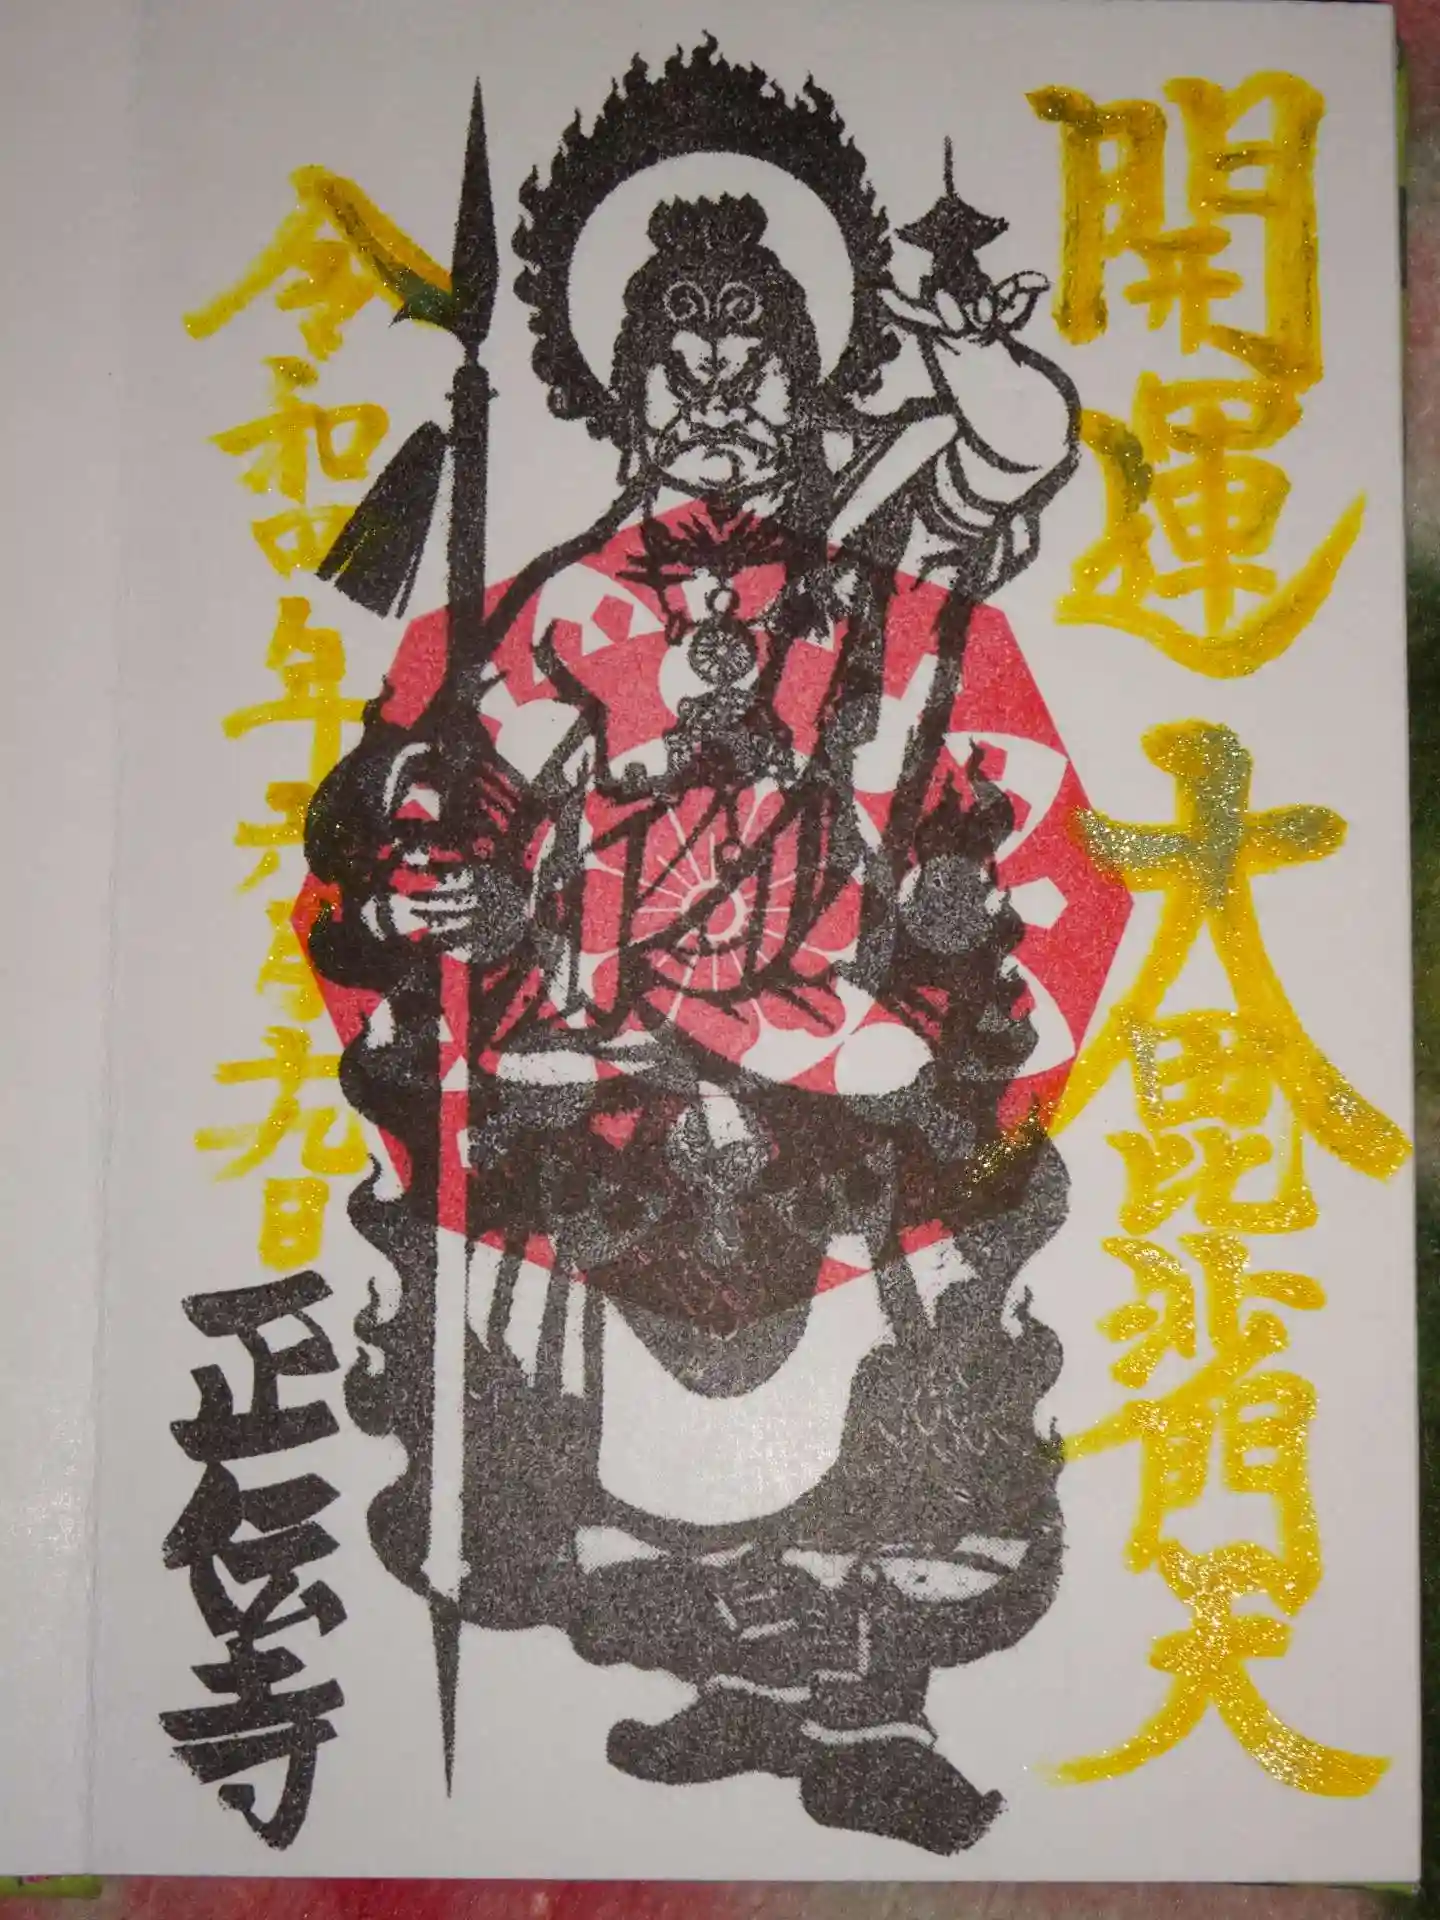 開運 大毘沙門天
令和四年六月九日
正伝寺